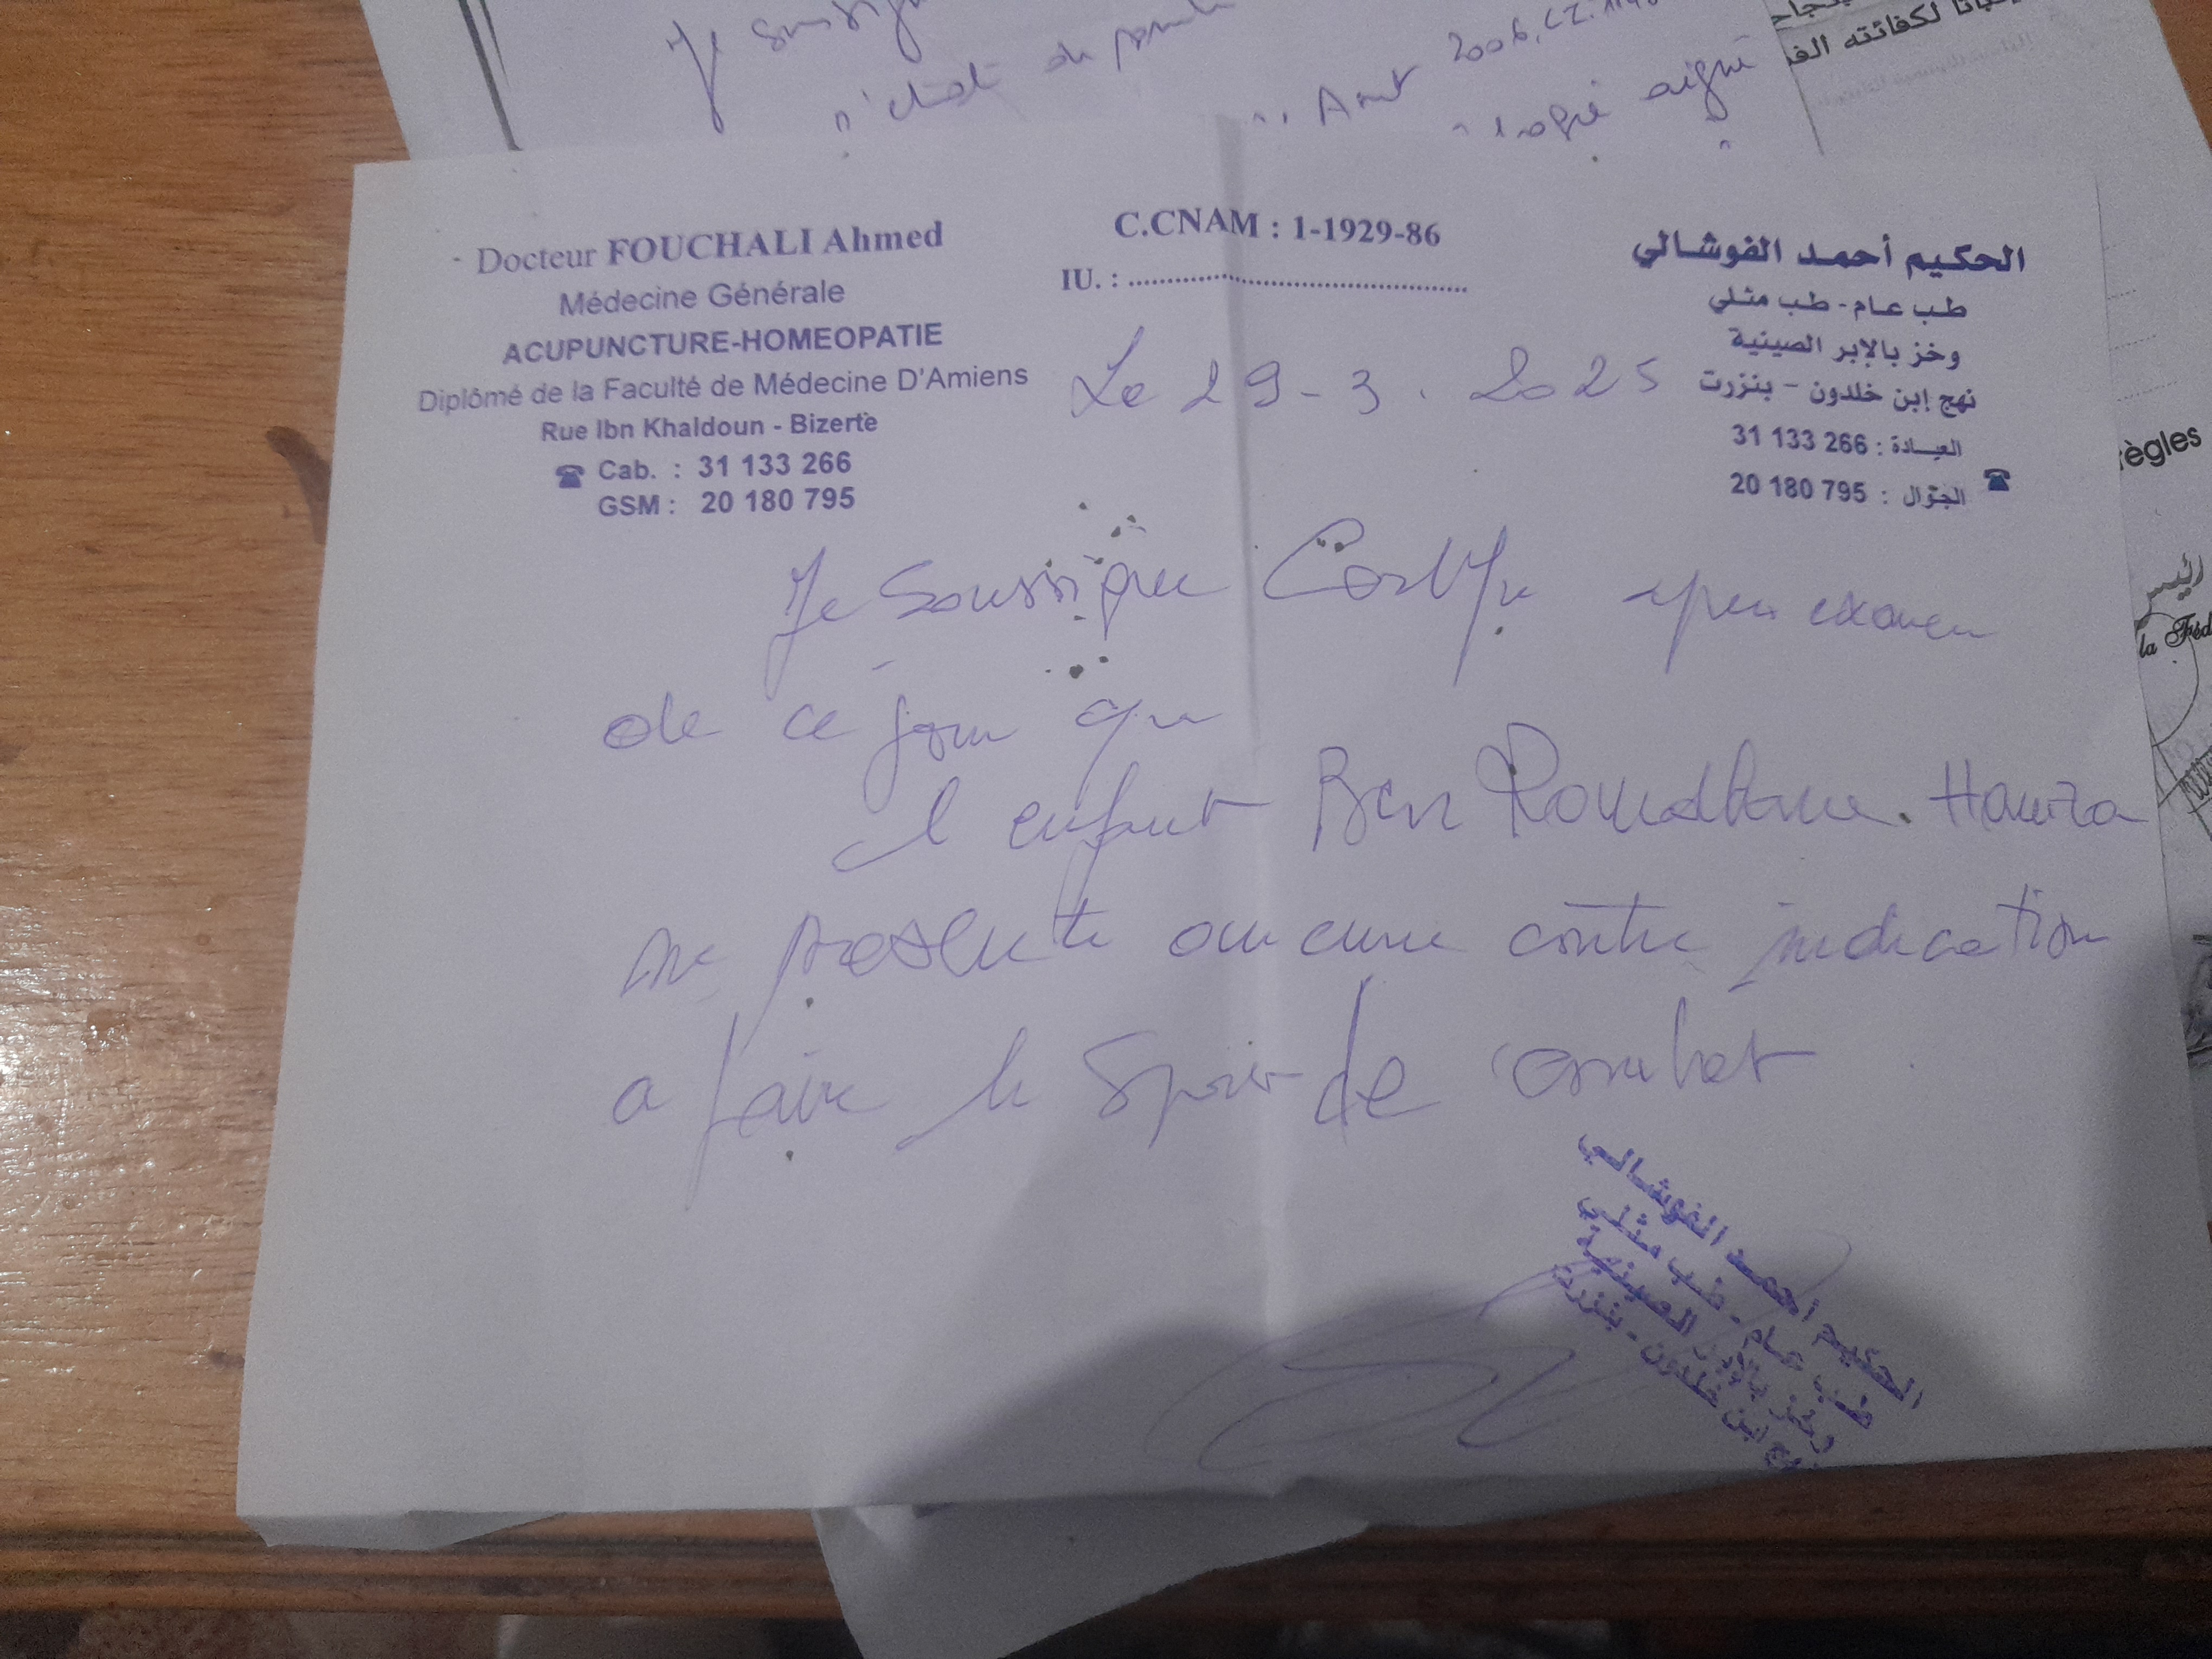 Je
n'
Aout 2006.
aigue
لكفائته
Docteur FOUCHALI Ahmed
Médecine Générale
ACUPUNCTURE-HOMEOPATIE
Diplômé de la Faculté de Médecine D'Amiens
Rue Ibn Khaldoun - Bizerte
☎ Cab. : 31 133 266
GSM : 20 180 795
C.CNAM : 1-1929-86
IU. : ........................................
الحكيم أحمد الفوشالي
طب عام - طب مثلي
وخز بالإبر الصينية
نهج إبن خلدون - بنزرت
العيادة : 31 133 266
الجوّال : 20 180 795 ☎
Le 29-3. 2025
Je Soussigne Certifie apres examen
de ce jour que
l enfant Ben Romdhane. Hamza
ne presente aucune contre indication
a faire le Sport de combat
الحكيم أحمد الفوشالي
طب عام - طب مثلي
وخز بالإبر الصينية
نهج ابن خلدون - بنزرت
règles
رئيس
la Féd